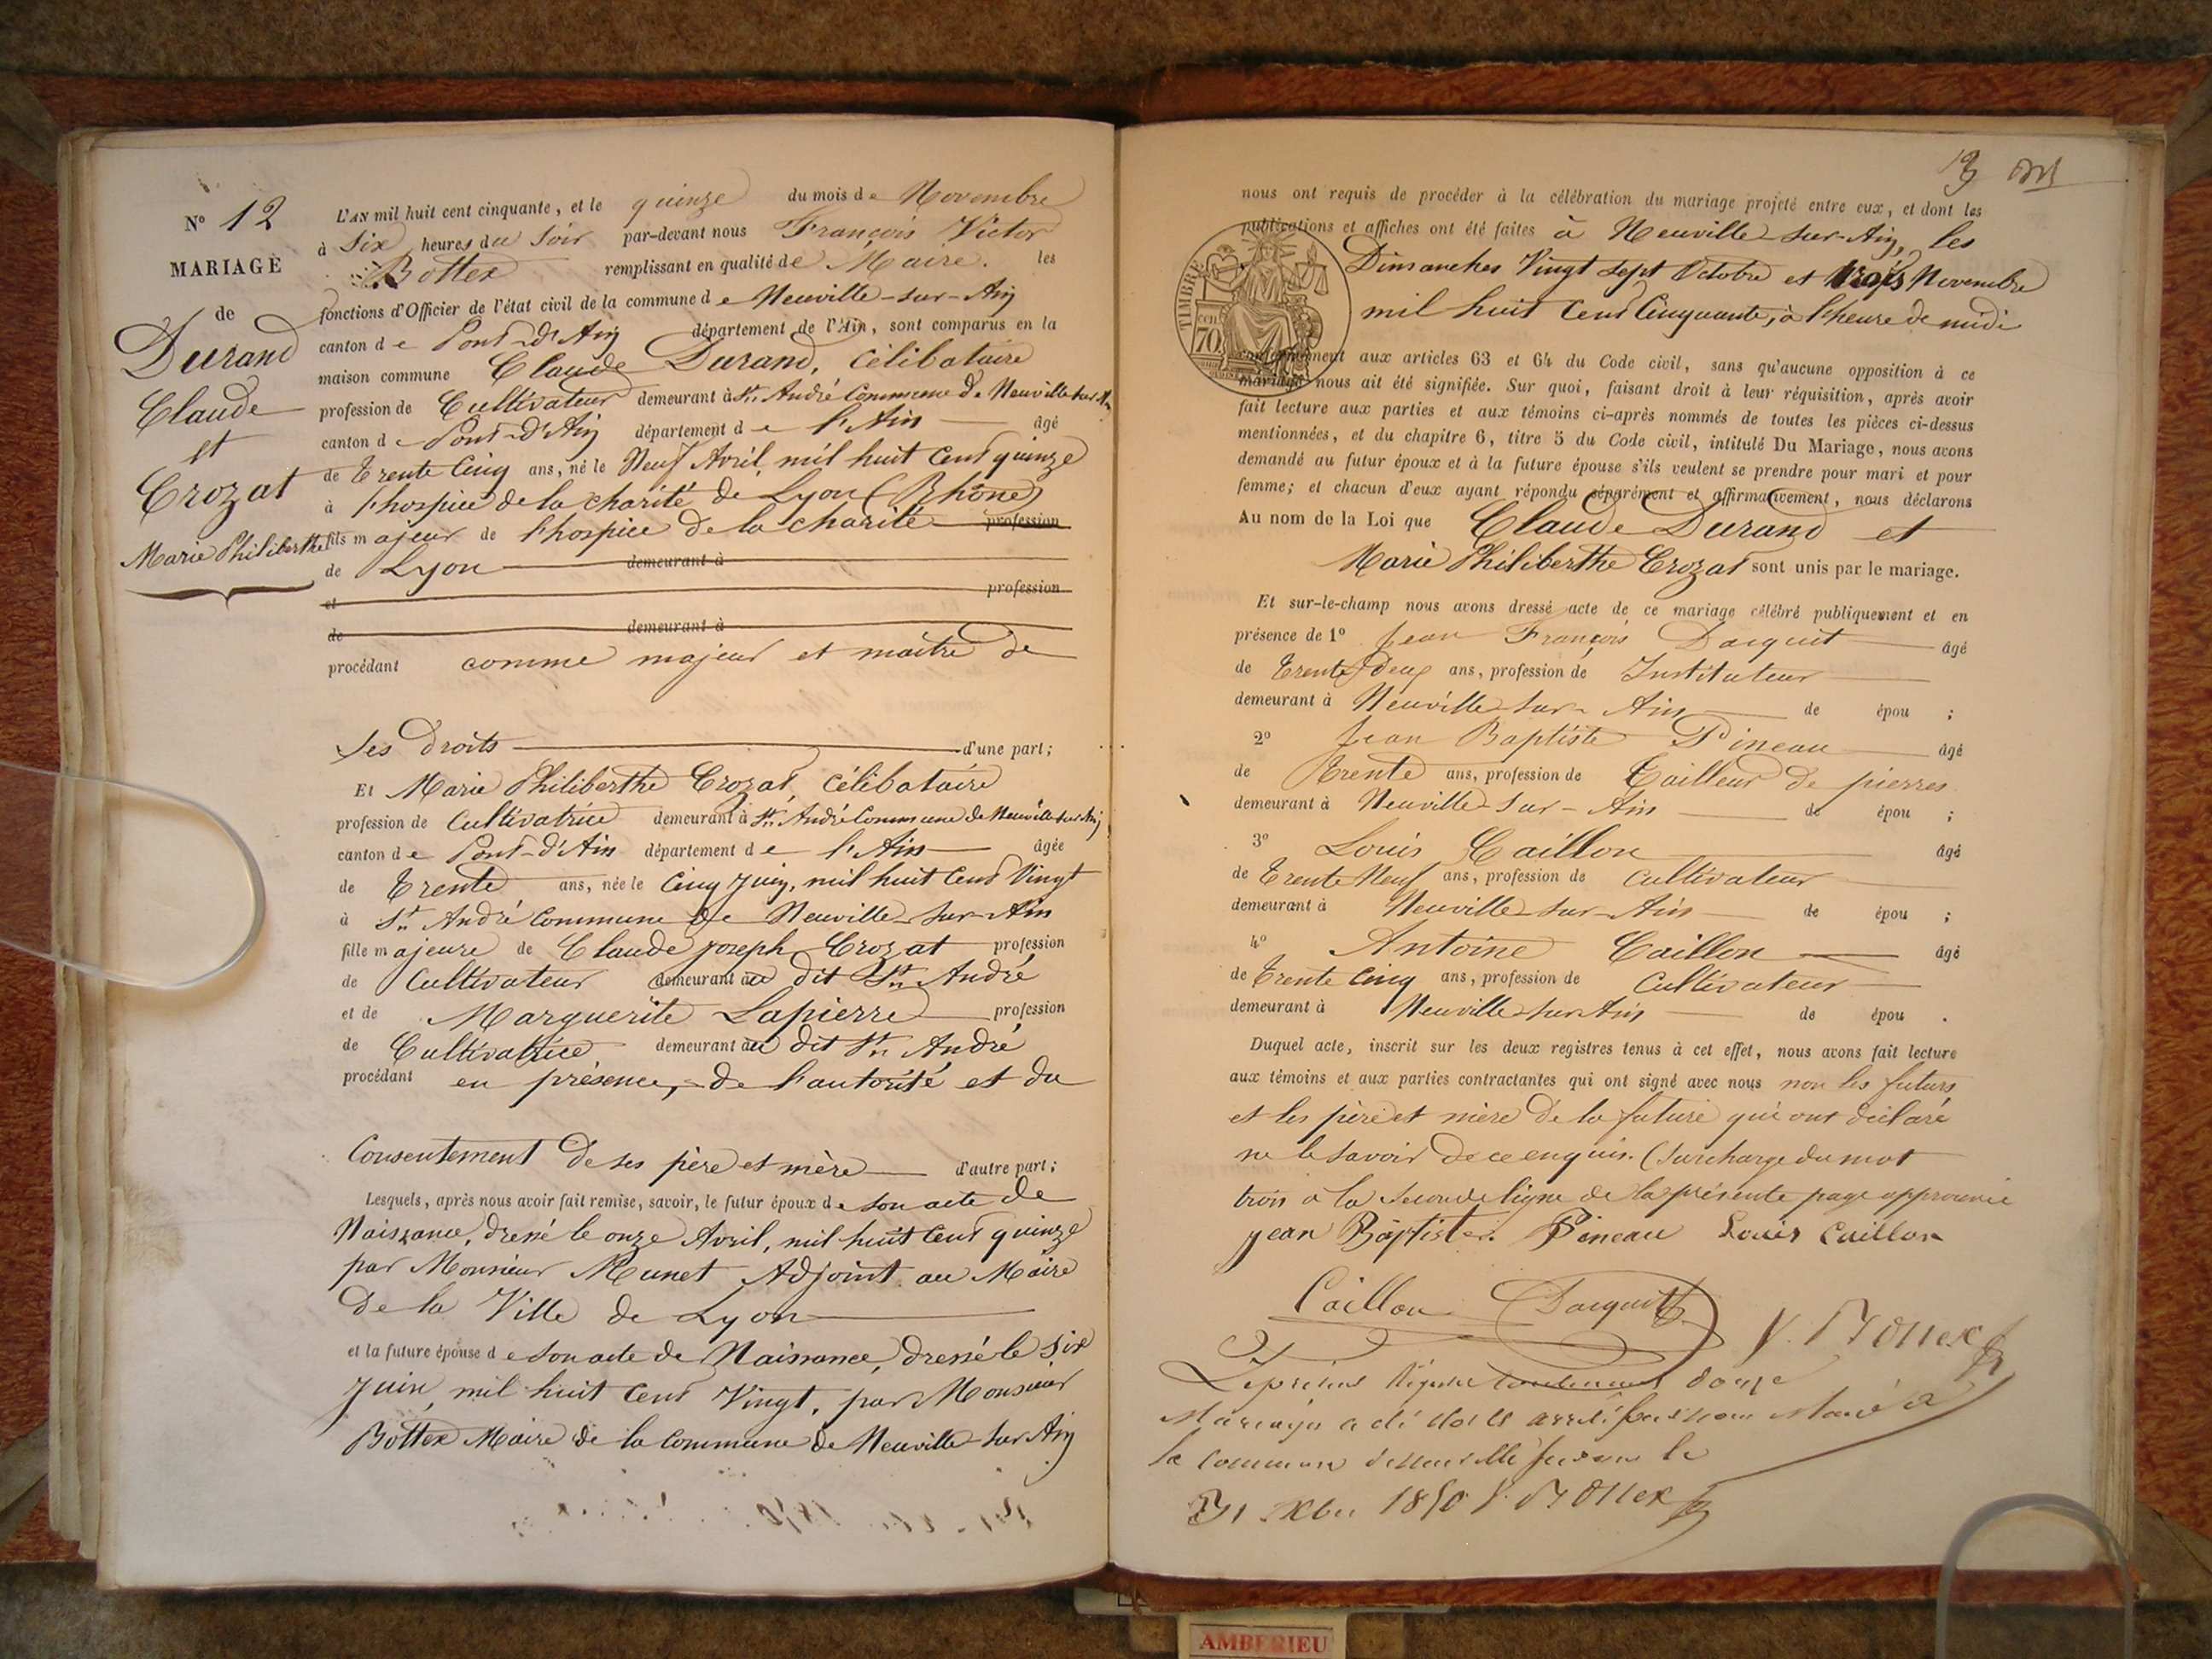 N° 12
MARIAGE
de
Durand
Claude
et
Crozat
Marie Philiberthe
L'AN mil huit cent cinquante, et le quinze du mois de Novembre
à Six heures du Soir par-devant nous François Victor
Bottex remplissant en qualité de Maire. les
fonctions d'Officier de l'état civil de la commune de Neuville-sur-Ain
canton de Pont-d'Ain département de l'Ain, sont comparus en la
maison commune Claude Durand, célibataire
profession de Cultivateur demeurant à St. André Commune de Neuville sur Ain
canton de Pont-d'Ain département de l'Ain âgé
de Trente Cinq ans, né le Neuf Avril mil huit Cent quinze
à l'hospice de la charité de Lyon (Rhône)
fils majeur de l'hospice de la charité profession
de Lyon demeurant à
et profession
de demeurant à
procédant comme majeur et maître de
ses droits d'une part;
Et Marie Philiberthe Crozat, célibataire
profession de Cultivatrice demeurant à St. André Commune de Neuville sur Ain
canton de Pont-d'Ain département de l'Ain âgée
de Trente ans, née le Cinq Juin, mil huit Cent Vingt
à St. André Commune de Neuville-sur-Ain
fille majeure de Claude joseph Crozat profession
de Cultivateur demeurant au dit St. André
et de Marguerite Lapierre profession
de Cultivatrice demeurant au dit St. André
procédant en présence, de l'autorité et du
Consentement de ses père et mère d'autre part;
Lesquels, après nous avoir fait remise, savoir, le futur époux de son acte de
Naissance, dressé le onze Avril, mil huit Cent quinze
par Monsieur Munet Adjoint au Maire
de la Ville de Lyon
et la future épouse de son acte de Naissance, dressé le Six
Juin, mil huit Cent Vingt, par Monsieur
Bottex Maire de la Commune de Neuville-sur Ain
13
nous ont requis de procéder à la célébration du mariage projeté entre eux, et dont les
publications et affiches ont été faites à Neuville-sur-Ain, les
Dimanches Vingt sept Octobre et trois Novembre
mil huit Cent Cinquante, à l'heure de midi
TIMBRE
70 cen
conformément aux articles 63 et 64 du Code civil, sans qu'aucune opposition à ce
mariage nous ait été signifiée. Sur quoi, faisant droit à leur réquisition, après avoir
fait lecture aux parties et aux témoins ci-après nommés de toutes les pièces ci-dessus
mentionnées, et du chapitre 6, titre 5 du Code civil, intitulé Du Mariage, nous avons
demandé au futur époux et à la future épouse s'ils veulent se prendre pour mari et pour
femme; et chacun d'eux ayant répondu séparément et affirmativement, nous déclarons
Au nom de la Loi que Claude Durand et
Marie Philiberthe Crozat sont unis par le mariage.
Et sur-le-champ nous avons dressé acte de ce mariage célébré publiquement et en
présence de 1° Jean François Darquit âgé
de Trente Deux ans, profession de Instituteur
demeurant à Neuville sur-Ain de épou ;
2° Jean Baptiste Pineau âgé
de Trente ans, profession de Tailleur de pierres
demeurant à Neuville-sur-Ain de épou ;
3° Louis Caillon âgé
de Trente Neuf ans, profession de Cultivateur
demeurant à Neuville-sur-Ain de épou ;
4° Antoine Caillon âgé
de Trente Cinq ans, profession de Cultivateur
demeurant à Neuville-sur-Ain de épou .
Duquel acte, inscrit sur les deux registres tenus à cet effet, nous avons fait lecture
aux témoins et aux parties contractantes qui ont signé avec nous non les futurs
et les père et mère de la future qui ont déclaré
ne le savoir de ce enquis. (Surcharge du mot
trois à la seconde ligne de la présente page approuvée
jean Baptiste. Pineau Louis Caillon
Caillon Darquit V. Bottex
Le présent Régistre contenant douze
Mariages a été clos et arrêté par nous Maire de
la commune de Neuville sur ain le
31 Xbre 1850 V. Bottex
AMBERIEU